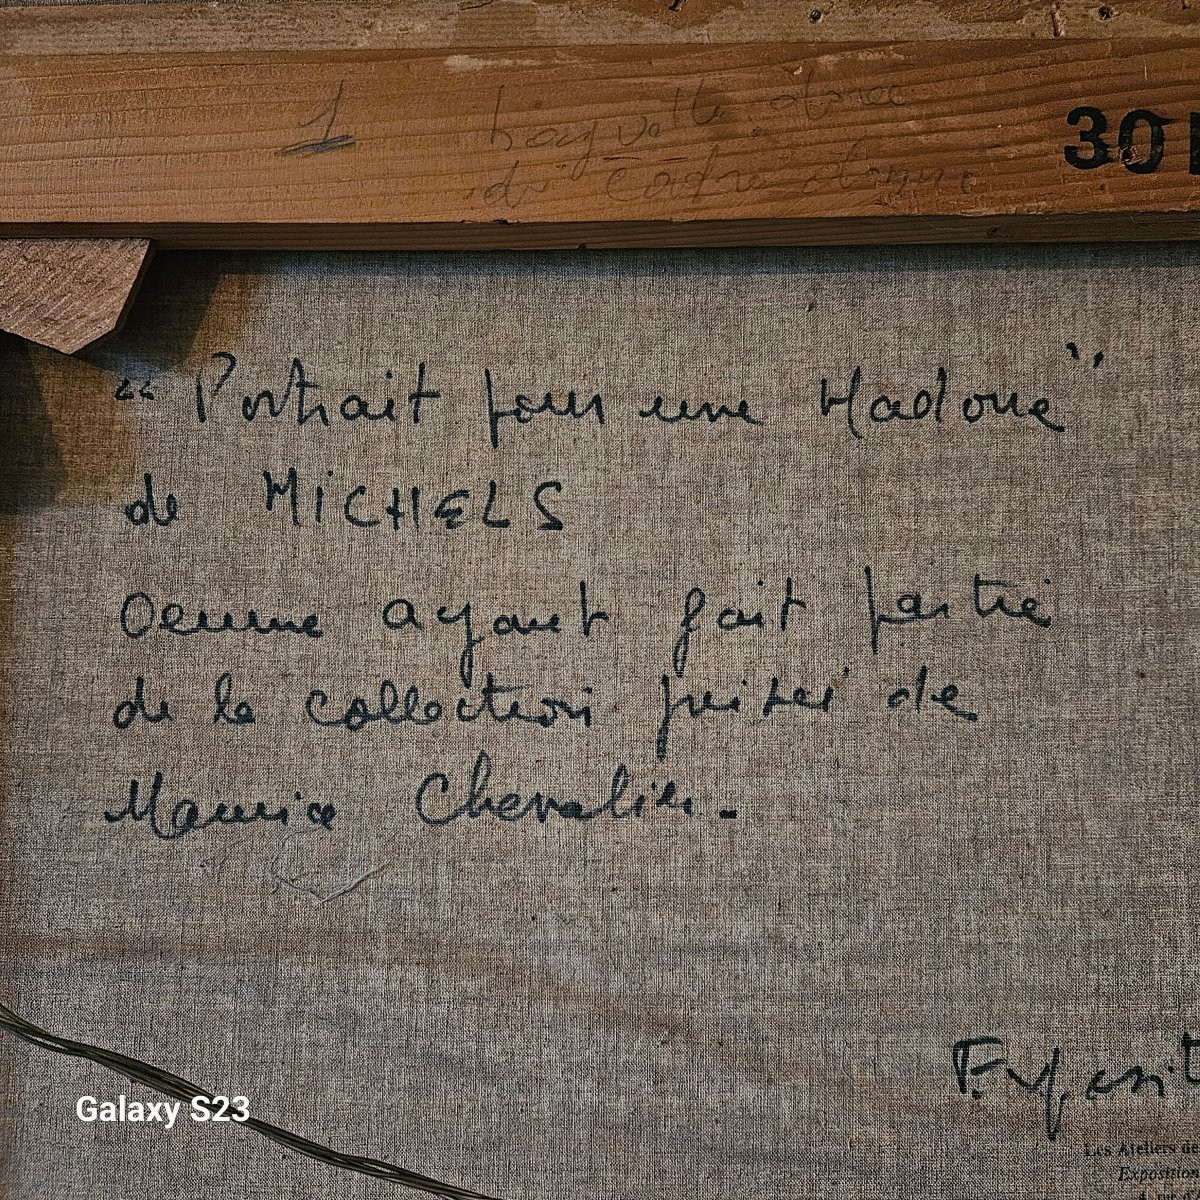 1 baguette dorée
du cadre
30
“ Portrait pour une Madone ”
de MICHELS
Oeuvre ayant fait partie
de la collection privée de
Maurice Chevalier.
Exposit
Galaxy S23
Les Ateliers de
Exposition